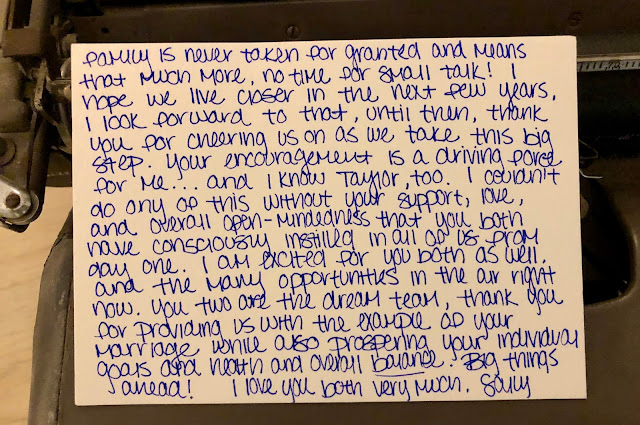 family is never taken for granted and means
that much more, no time for small talk! I
hope we live closer in the next few years.
I look forward to that, until then, thank
you for cheering us on as we take this big
step. Your encouragement is a driving force
for me.... and I know Taylor, too. I couldn't
do any of this without your support, love,
and overall open-mindedness that you both
have consciously instilled in all of us from
day one. I am excited for you both as well.
and the many opportunities in the air right
now. You two are the dream team, thank you
for providing us with the example of your
marriage while also prospering your individual
goals and health and overall balance. Big things
ahead! I love you both very much. Sally